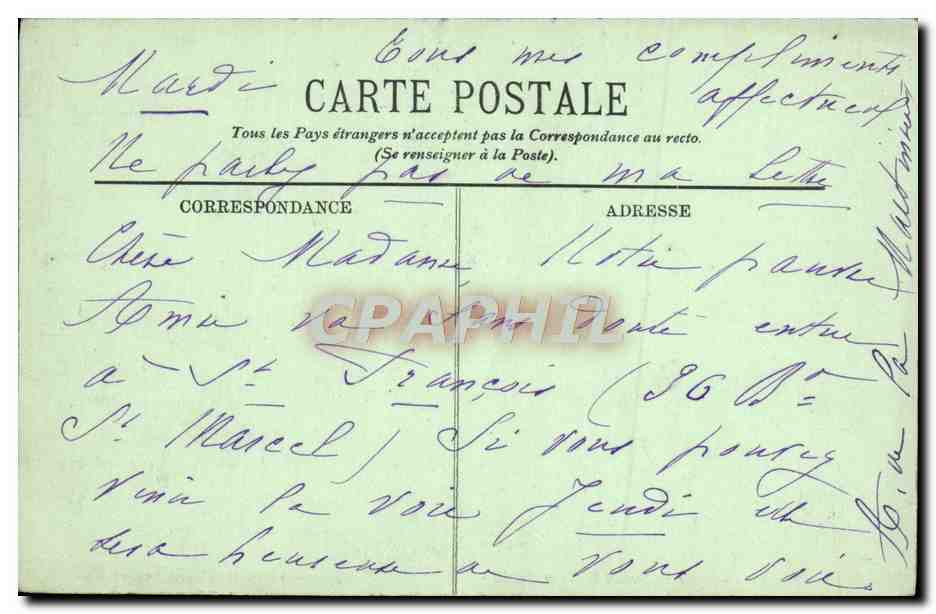 Mardi
Tous mes compliments
affectueux
CARTE POSTALE
Tous les Pays étrangers n'acceptent pas la Correspondance au recto.
(Se renseigner à la Poste).
Ne parlez pas de ma lettre
CORRESPONDANCE
ADRESSE
Chère Madame, Notre pauvre
Amie va sans doute entrer
à St François (36 Bd
St Marcel) Si vous pouvez
venir la voir Jeudi elle
sera heureuse de vous voir.
de La
CPAPHIL